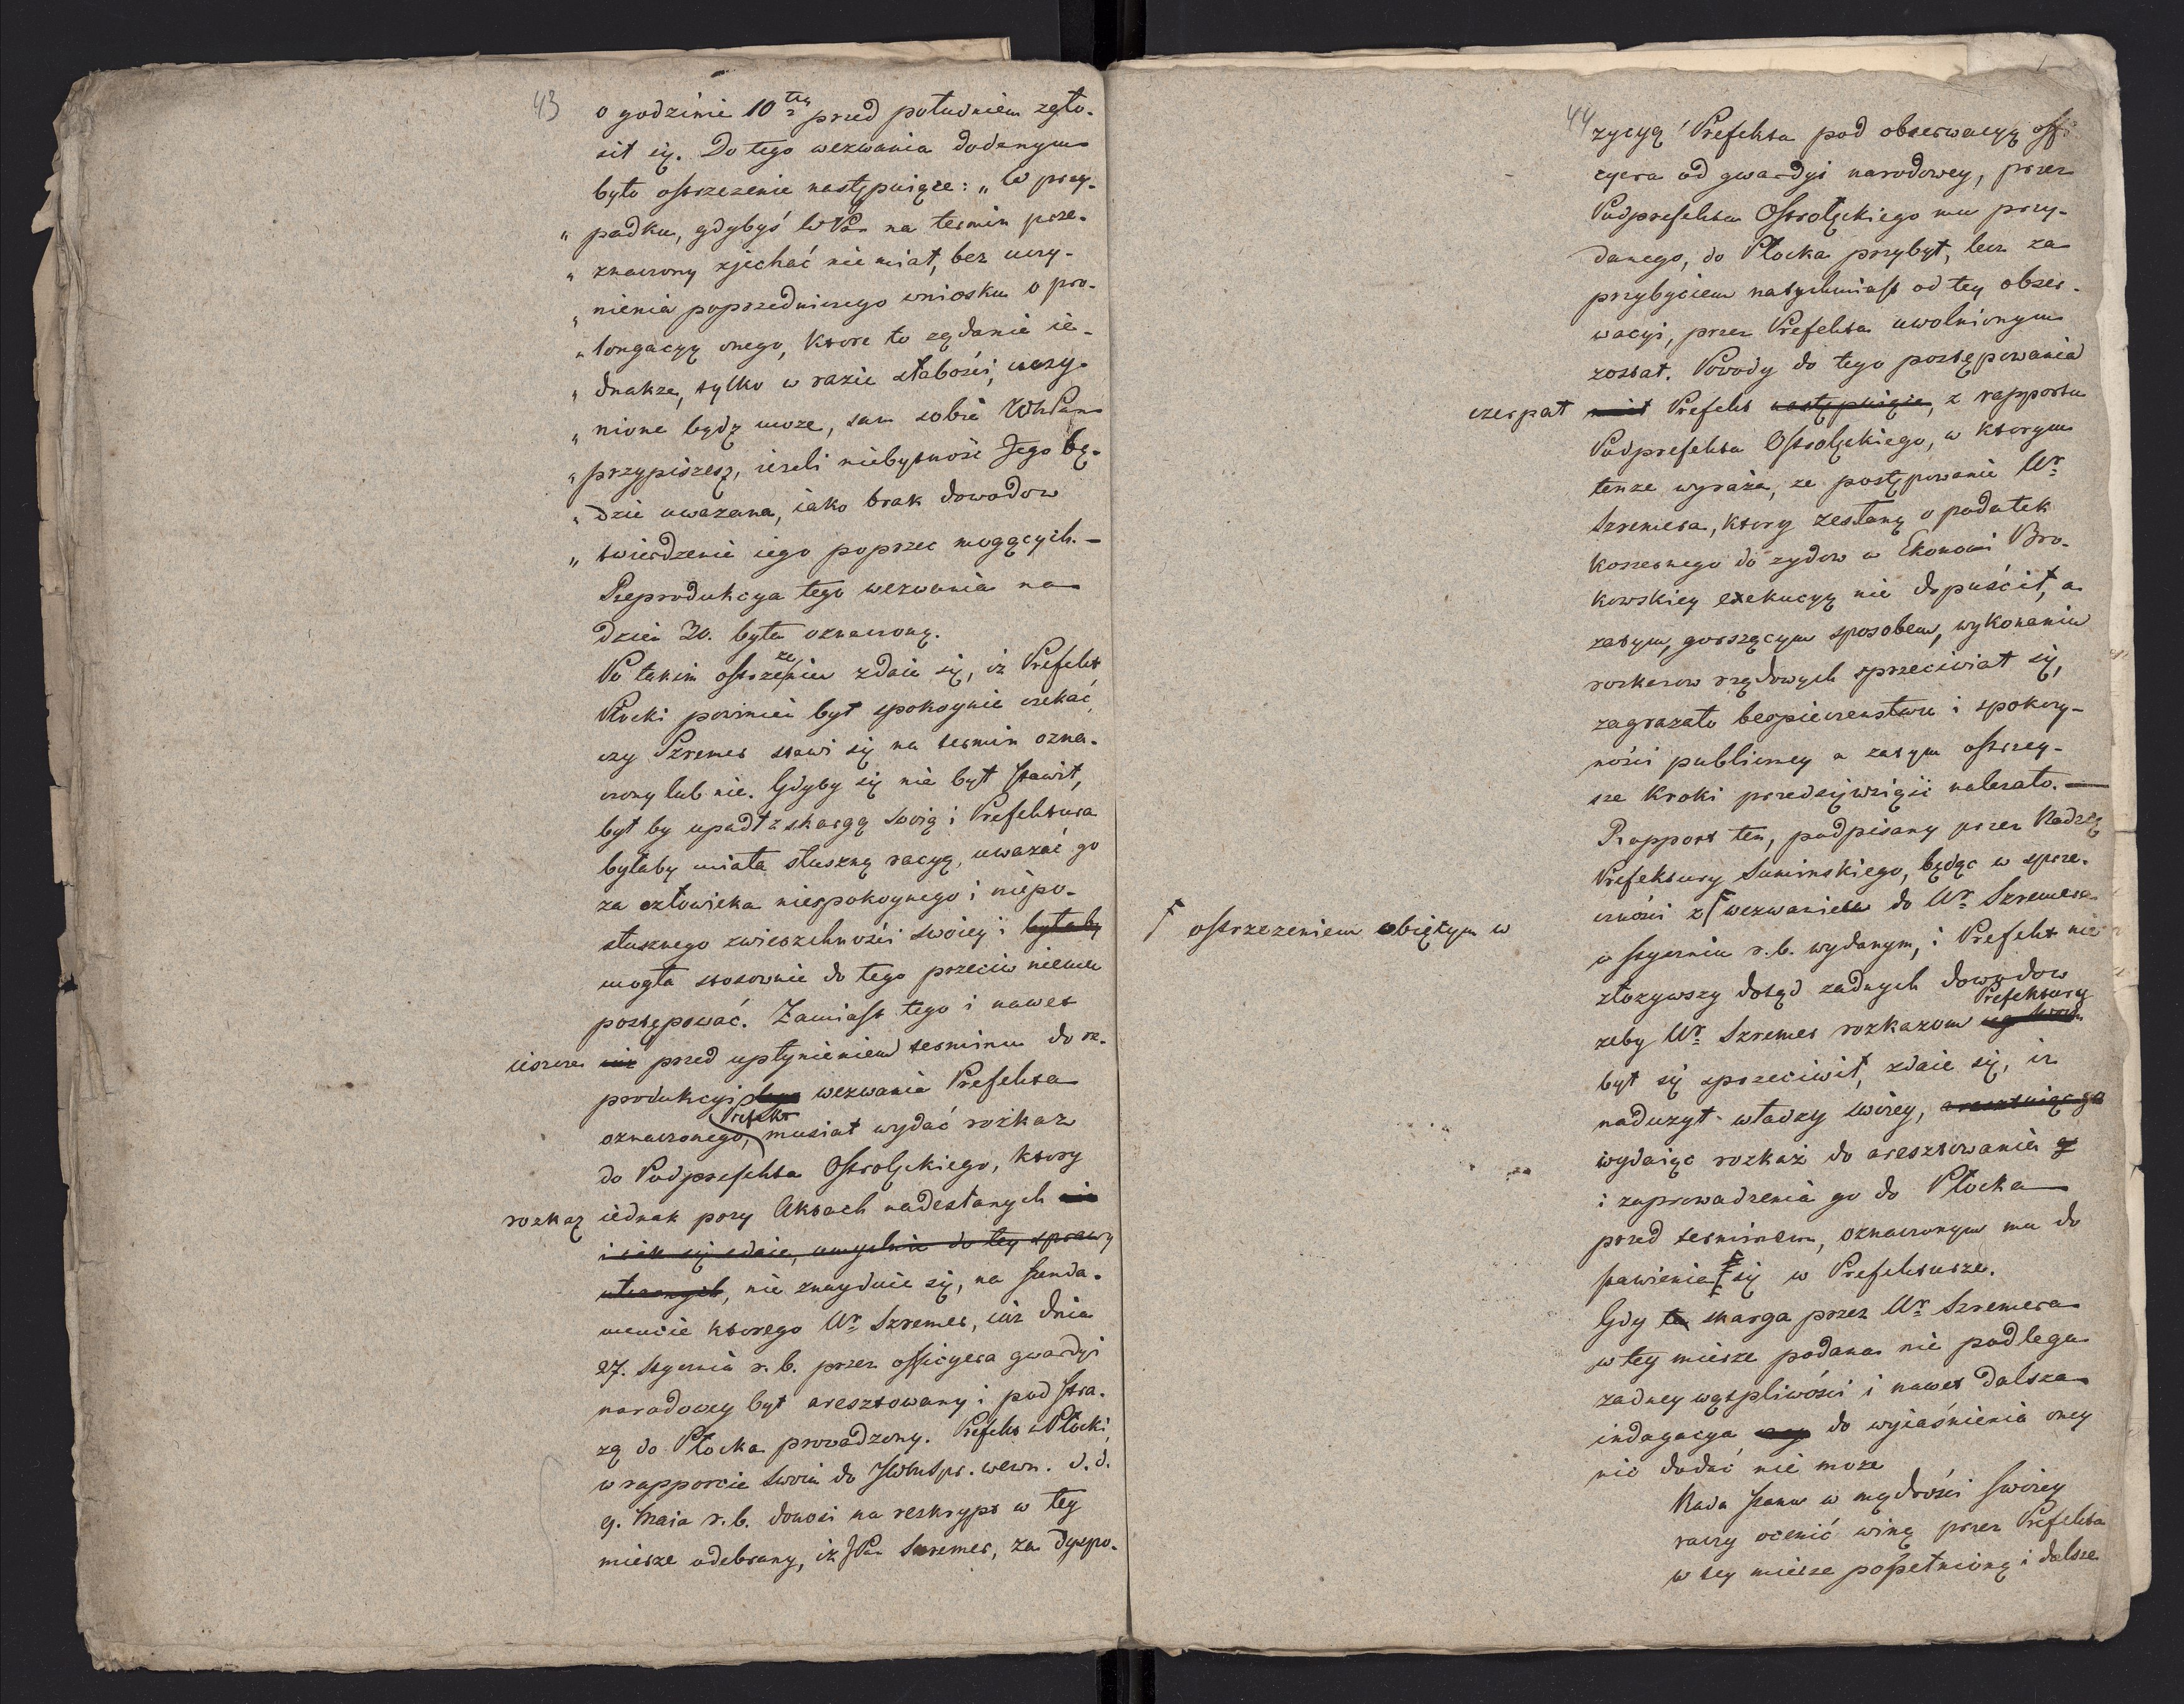 43
o godzinie 10tey przed południem zgło-
sił się. Do tego wezwania dodanym
było ostrzezenie następuiące: „W przy-
„padku, gdybyś WPan na termin prze-
„znaczony zjechać nie miał, bez uczy-
„nienia poprzedniczego wniosku o pro-
„longacyą onego, ktore to ządanie ie-
„dnakze, tylko w razie słabości, uczy-
„nione bydz moze, sam sobie WhPan
„przypiszesz, iezeli niebytność Jego bę-
„dzie uwazana, iako brak dowodow
„twierdzenie iego poprzec mogących. —
Reprodukcya tego wezwania na
dzień 30. była oznaczoną.
Po takim ostrzezeniu zdaie się, iz Prefekt
Płocki powinien był spokoynie czekać,
czy Szremer stawi się na termin ozna-
czony lub nie. Gdyby się nie był stawił,
był by upadł z skargą swoią i Prefektura
byłaby miała słuszną racyą, uwazać go
za człowieka niespokoynego i niepo-
słusznego zwierzchności swoiey i byłaby
mogła stosownie do tego przeciw niemu
postępować. Zamiast tego i nawet
ieszcze nie przed upłynieniem terminu do re-
produkcyi wezwania Prefekta
oznaczonego, Prefekt musiał wydać rozkaz
do Podprefekta Ostrołęckiego, ktory
rozkaz iednak przy Aktach nadesłanych nie
i iak się zdaie, umyslnie do tey sprawy
, nie znayduie się, na funda-
mencie ktorego Wr Szremer, iuz dnia
27. Stycznia r. b. przez officyera gwardyi
narodowey był aresztowany i pod stra-
zą do Płocka prowadzony. Prefekt Płocki,
w rapporcie swoim do JWMSpr. wewn. d. d.
9. Maia r. b. donosi na reskrypt w tey
mierze odebrany, iz JPan Szremer, za dyspo-
44
zycyą Prefekta pod obserwacyą offi
cyera od gwardyi narodowey, przez
Podprefekta Ostrołęckiego mu przy-
danego, do Płocka przybył, lecz za
przybyciem natychmiast od tey obser-
wacyi, przez Prefekta uwolnionym
został. Powody do tego postępowania
czerpał miał Prefekt następuiące, z rapportu
Podprefekta Ostrołęckiego, w ktorym
tenze wyraża, ze postępowanie Wr
Szremera, ktory zesłaną o podatek
koszernego do zydow w Ekonomi Bro-
kowskiey exekucyą nie dopuścił, a
zatym, gorszącym sposobem, wykonaniu
rozkazow rządowych sprzeciwiał się,
zagrazało bespieczeństwu i spokoy-
ności publiczney a zatym ostrzey-
sze kroki przedsięwziąść nalezało. —
Rapport ten, podpisany przez Radzcę
Prefektury Suminskiego, będąc w sprze-
czności z
ostrzezeniem obiętym w
wezwaniem do Wr Szremera
w styczniu r. b. wydanym, i Prefekt nie
złozywszy dotąd zadnych dowodow
zeby Wr Szremer rozkazom Prefektury
był się sprzeciwił, zdaie się, iz
naduzył władzy swoiey, aresztuiąc go
wydaiąc rozkaz do aresztowania
i zaprowadzenia go do Płocka
przed terminem, oznaczonym mu do
stawienia się w Prefekturze.
Gdy ta skarga przez Wr Szremera
w tey mierze podana nie podlega
zadney wątpliwości i nawet dalsza
indagacya do wyiaśnienia oney
nic dodać nie moze
Rada stanu w mądrości swoiey
raczy ocenić winę przez Prefekta
w tey mierze popełnioną i dalsze